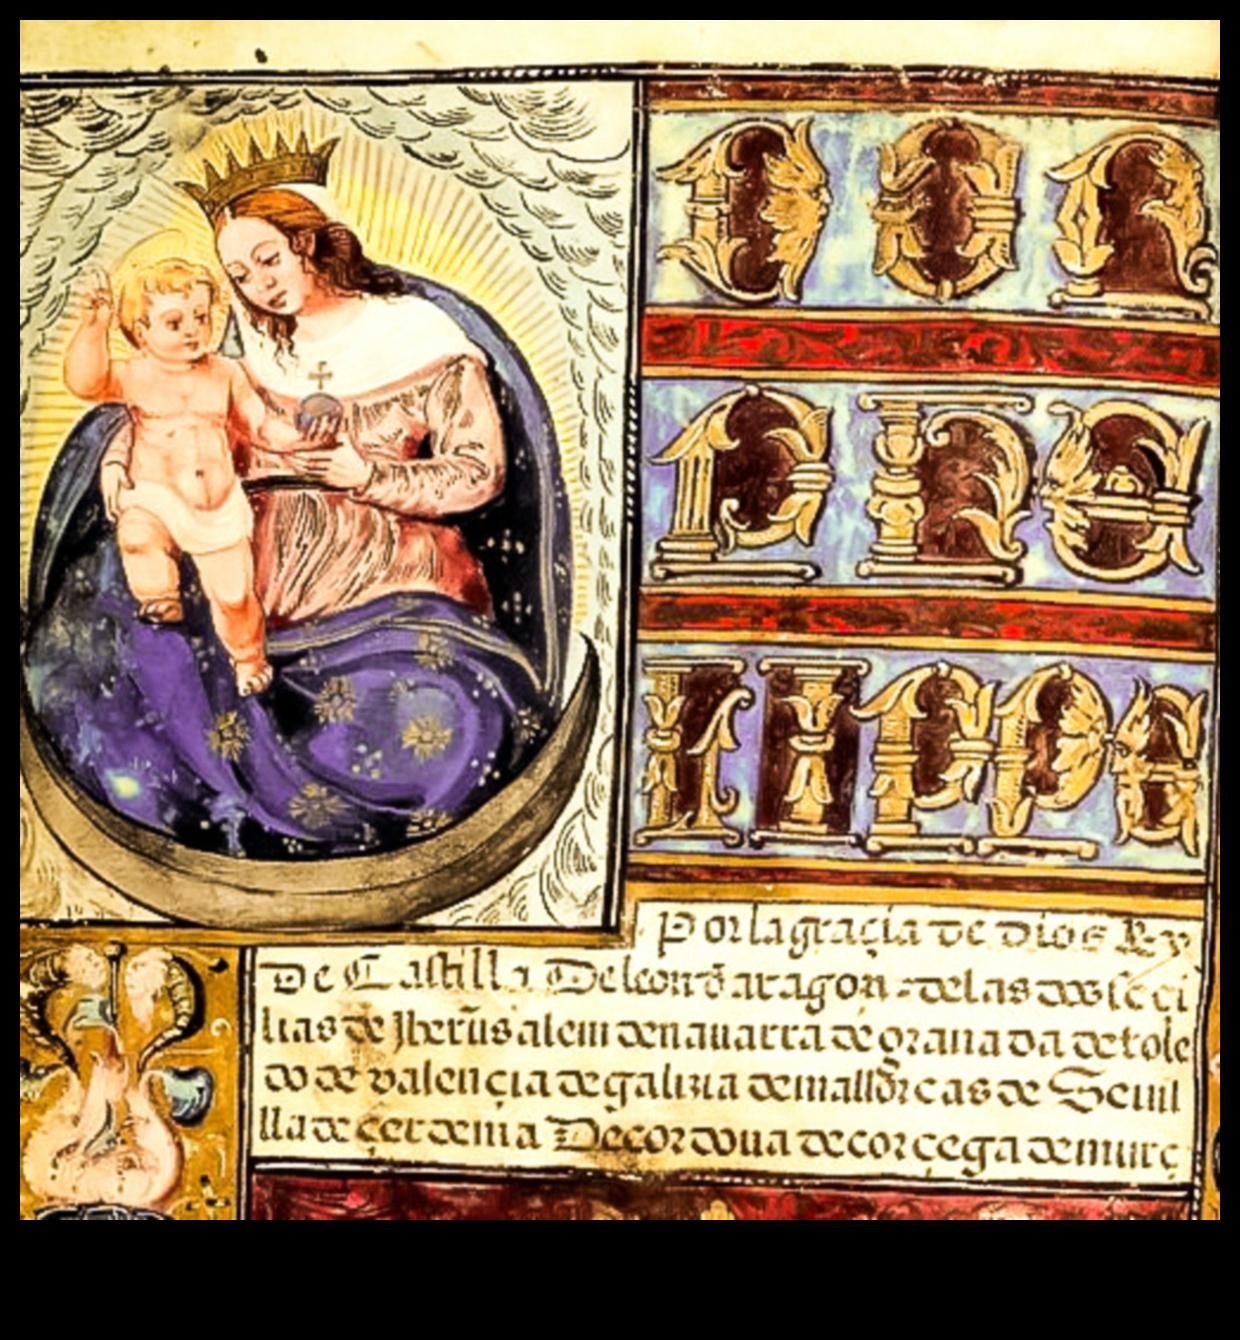 DON
PHE
LIPPE
Por la graçia de dios Rey
De Castilla De leon d̃ aragon de las dos seci
lias de Jherũsalem de nauarra de granada de tole
do de valençia de galizia de mallorcas de Seuil
lla de çerdenia De cordoua de corçega de murç